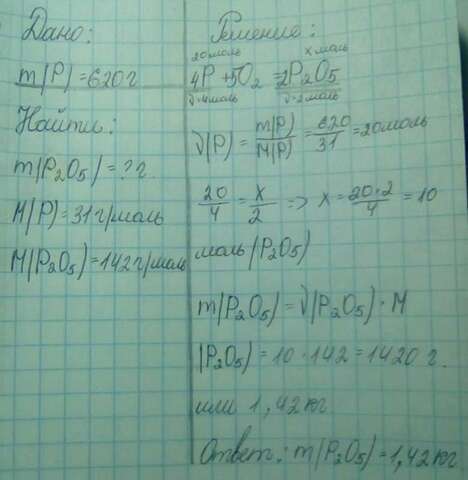 Дано:
m(P)=620г
Найти:
m(P₂O₅)=?г.
M(P)=31г/моль
M(P₂O₅)=142г/моль
Решение:
20моль x моль
4P + 5O₂ = 2P₂O₅
ν=4моль ν=2моль
ν(P) = m(P)/M(P) = 620/31 = 20моль
20/4 = x/2 => x = 20·2/4 = 10
моль(P₂O₅)
m(P₂O₅) = ν(P₂O₅) · M
(P₂O₅) = 10 · 142 = 1420 г.
или 1,42кг
Ответ: m(P₂O₅) = 1,42кг